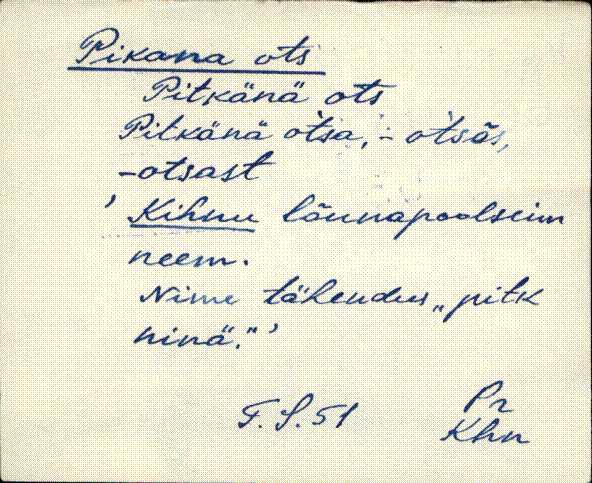 Pikana ots
Pitkänä ots
Pitkänä o`tsa, - o`tsäs,
-otsast
' Kihnu lõunapoolseim
neem.
Nime tähendus „pitk
ninä."'
F. S. 51 Pr
Khn